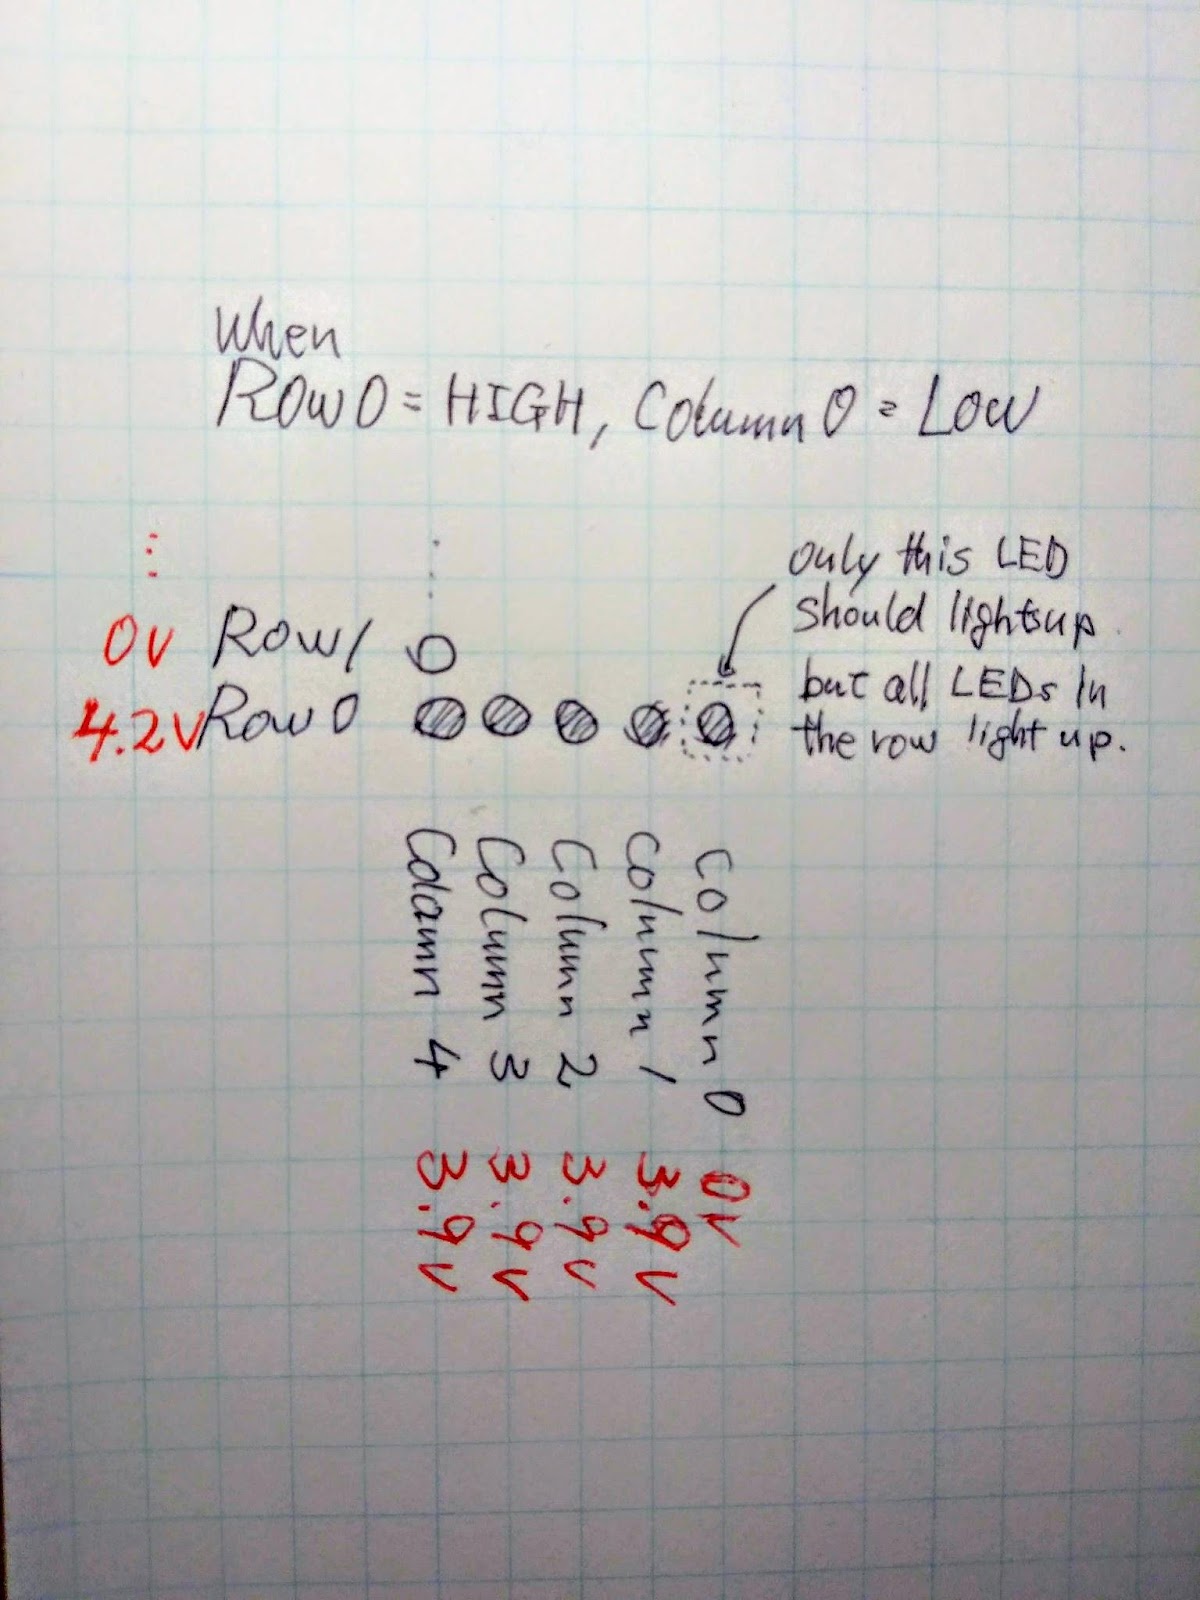 When
Row 0 = HIGH, Column 0 = LOW
only this LED
should lightsup.
but all LEDs in
the row light up.
0V Row 1
4.2V Row 0
Column 0 0V
Column 1 3.9V
Column 2 3.9V
Column 3 3.9V
Column 4 3.9V